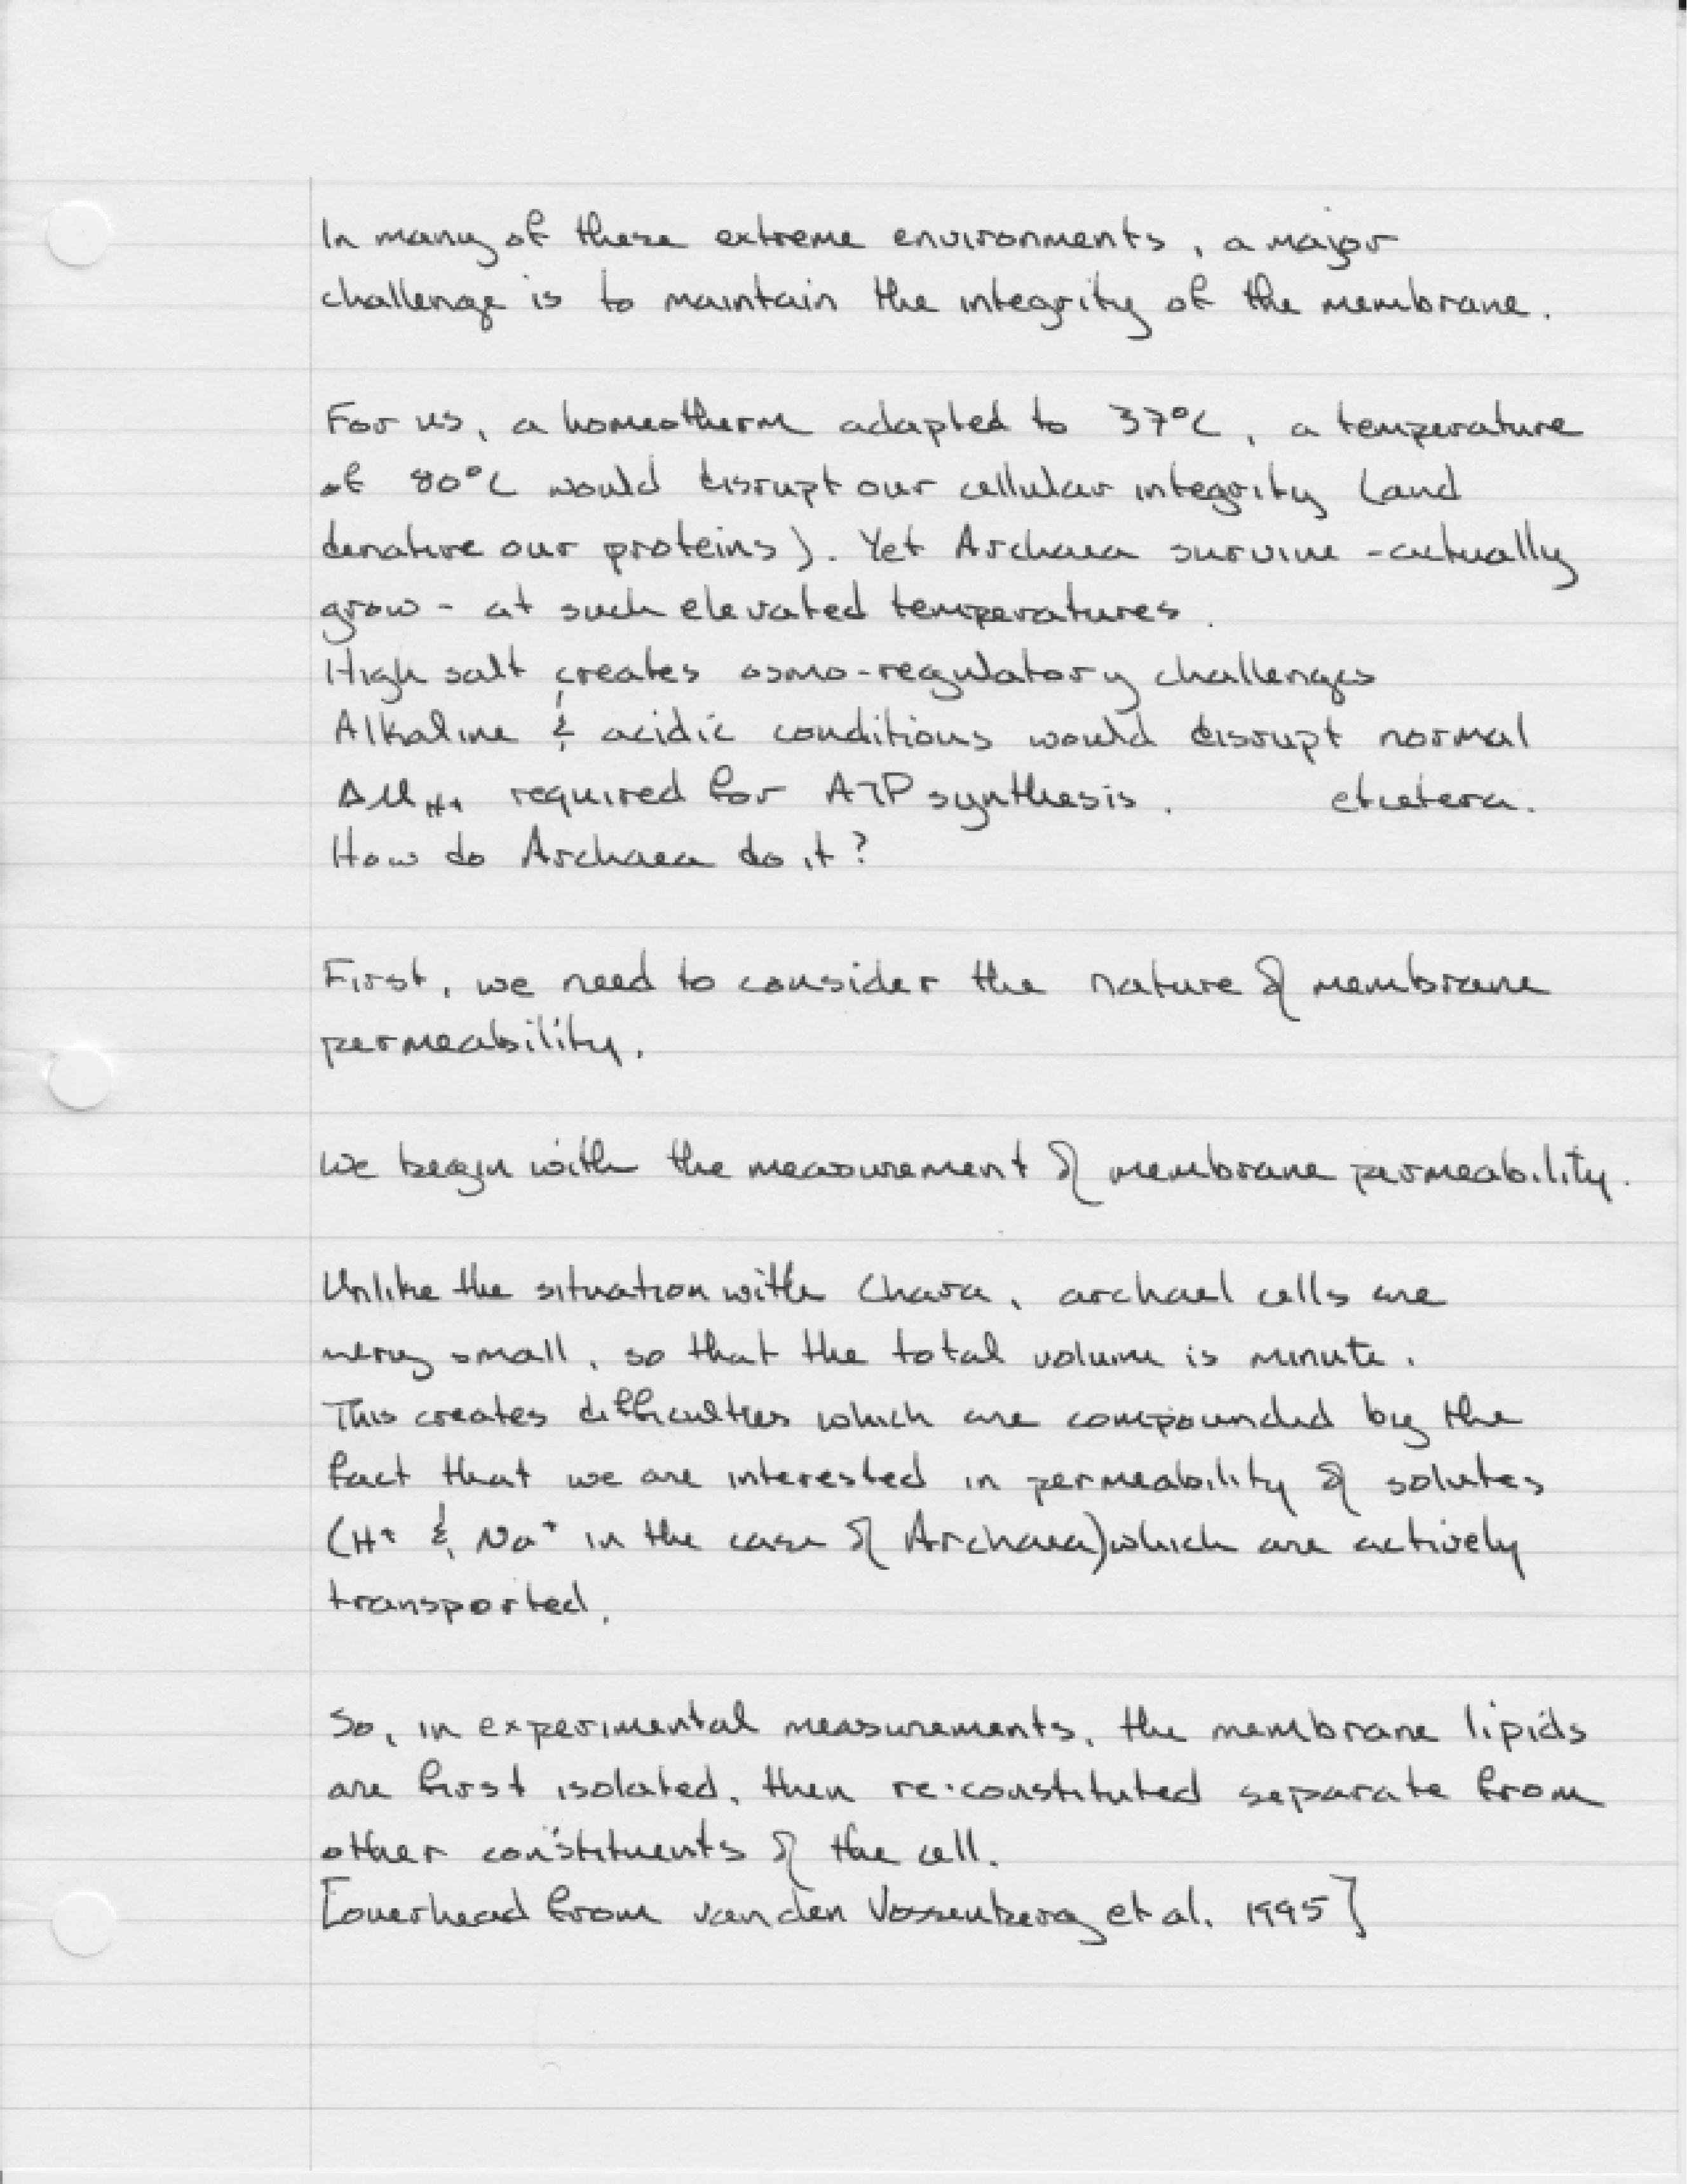 In many of these extreme environments, a major
challenge is to maintain the integrity of the membrane.
For us, a homeotherm adapted to 37°C, a temperature
of 80°C would disrupt our cellular integrity (and
denature our proteins). Yet Archaea survive - actually
grow - at such elevated temperatures.
High salt creates osmo-regulatory challenges
Alkaline & acidic conditions would disrupt normal
Δμ_H+ required for ATP synthesis. etcetera.
How do Archaea do it?
First, we need to consider the nature of membrane
permeability.
We begin with the measurement of membrane permeability.
Unlike the situation with Chara, archael cells are
very small, so that the total volume is minute.
This creates difficulties which are compounded by the
fact that we are interested in permeability of solutes
(H+ & Na+ in the case of Archaea) which are actively
transported.
So, in experimental measurements, the membrane lipids
are first isolated, then re-constituted separate from
other constituents of the cell.
[overhead from van den Vossenberg et al. 1995]